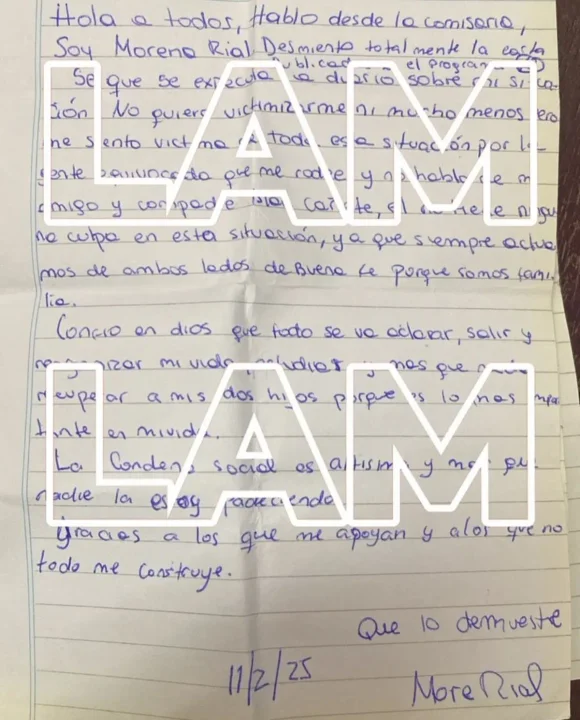 Hola a todos, Hablo desde la comisaria,
Soy Morena Rial Desmiento totalmente la carta
publicada el programa
Se que se especula a diario sobre mi situa-
ción No quiero victimizarme ni mucho menos pero
me siento victima de toda esa situación por la
gente que me rodie y no hablo de mi
amigo y compadre el no tiene ningu
na culpa en esta situación, ya que siempre actua
mos de ambos lados de buena fe porque somos fami-
lia.
Confio en dios que todo se va aclarar, salir y
reorganizar mi vida, estudiar y mas que nada
recuperar a mis dos hijos porque es lo mas impo
tante en mi vida.
La Condena social es altisima y mas que
nadie la estoy padeciendo
Gracias a los que me apoyan y a los que no
todo me construye.
Que lo demueste
11/2/25
More Rial
LAM
LAM